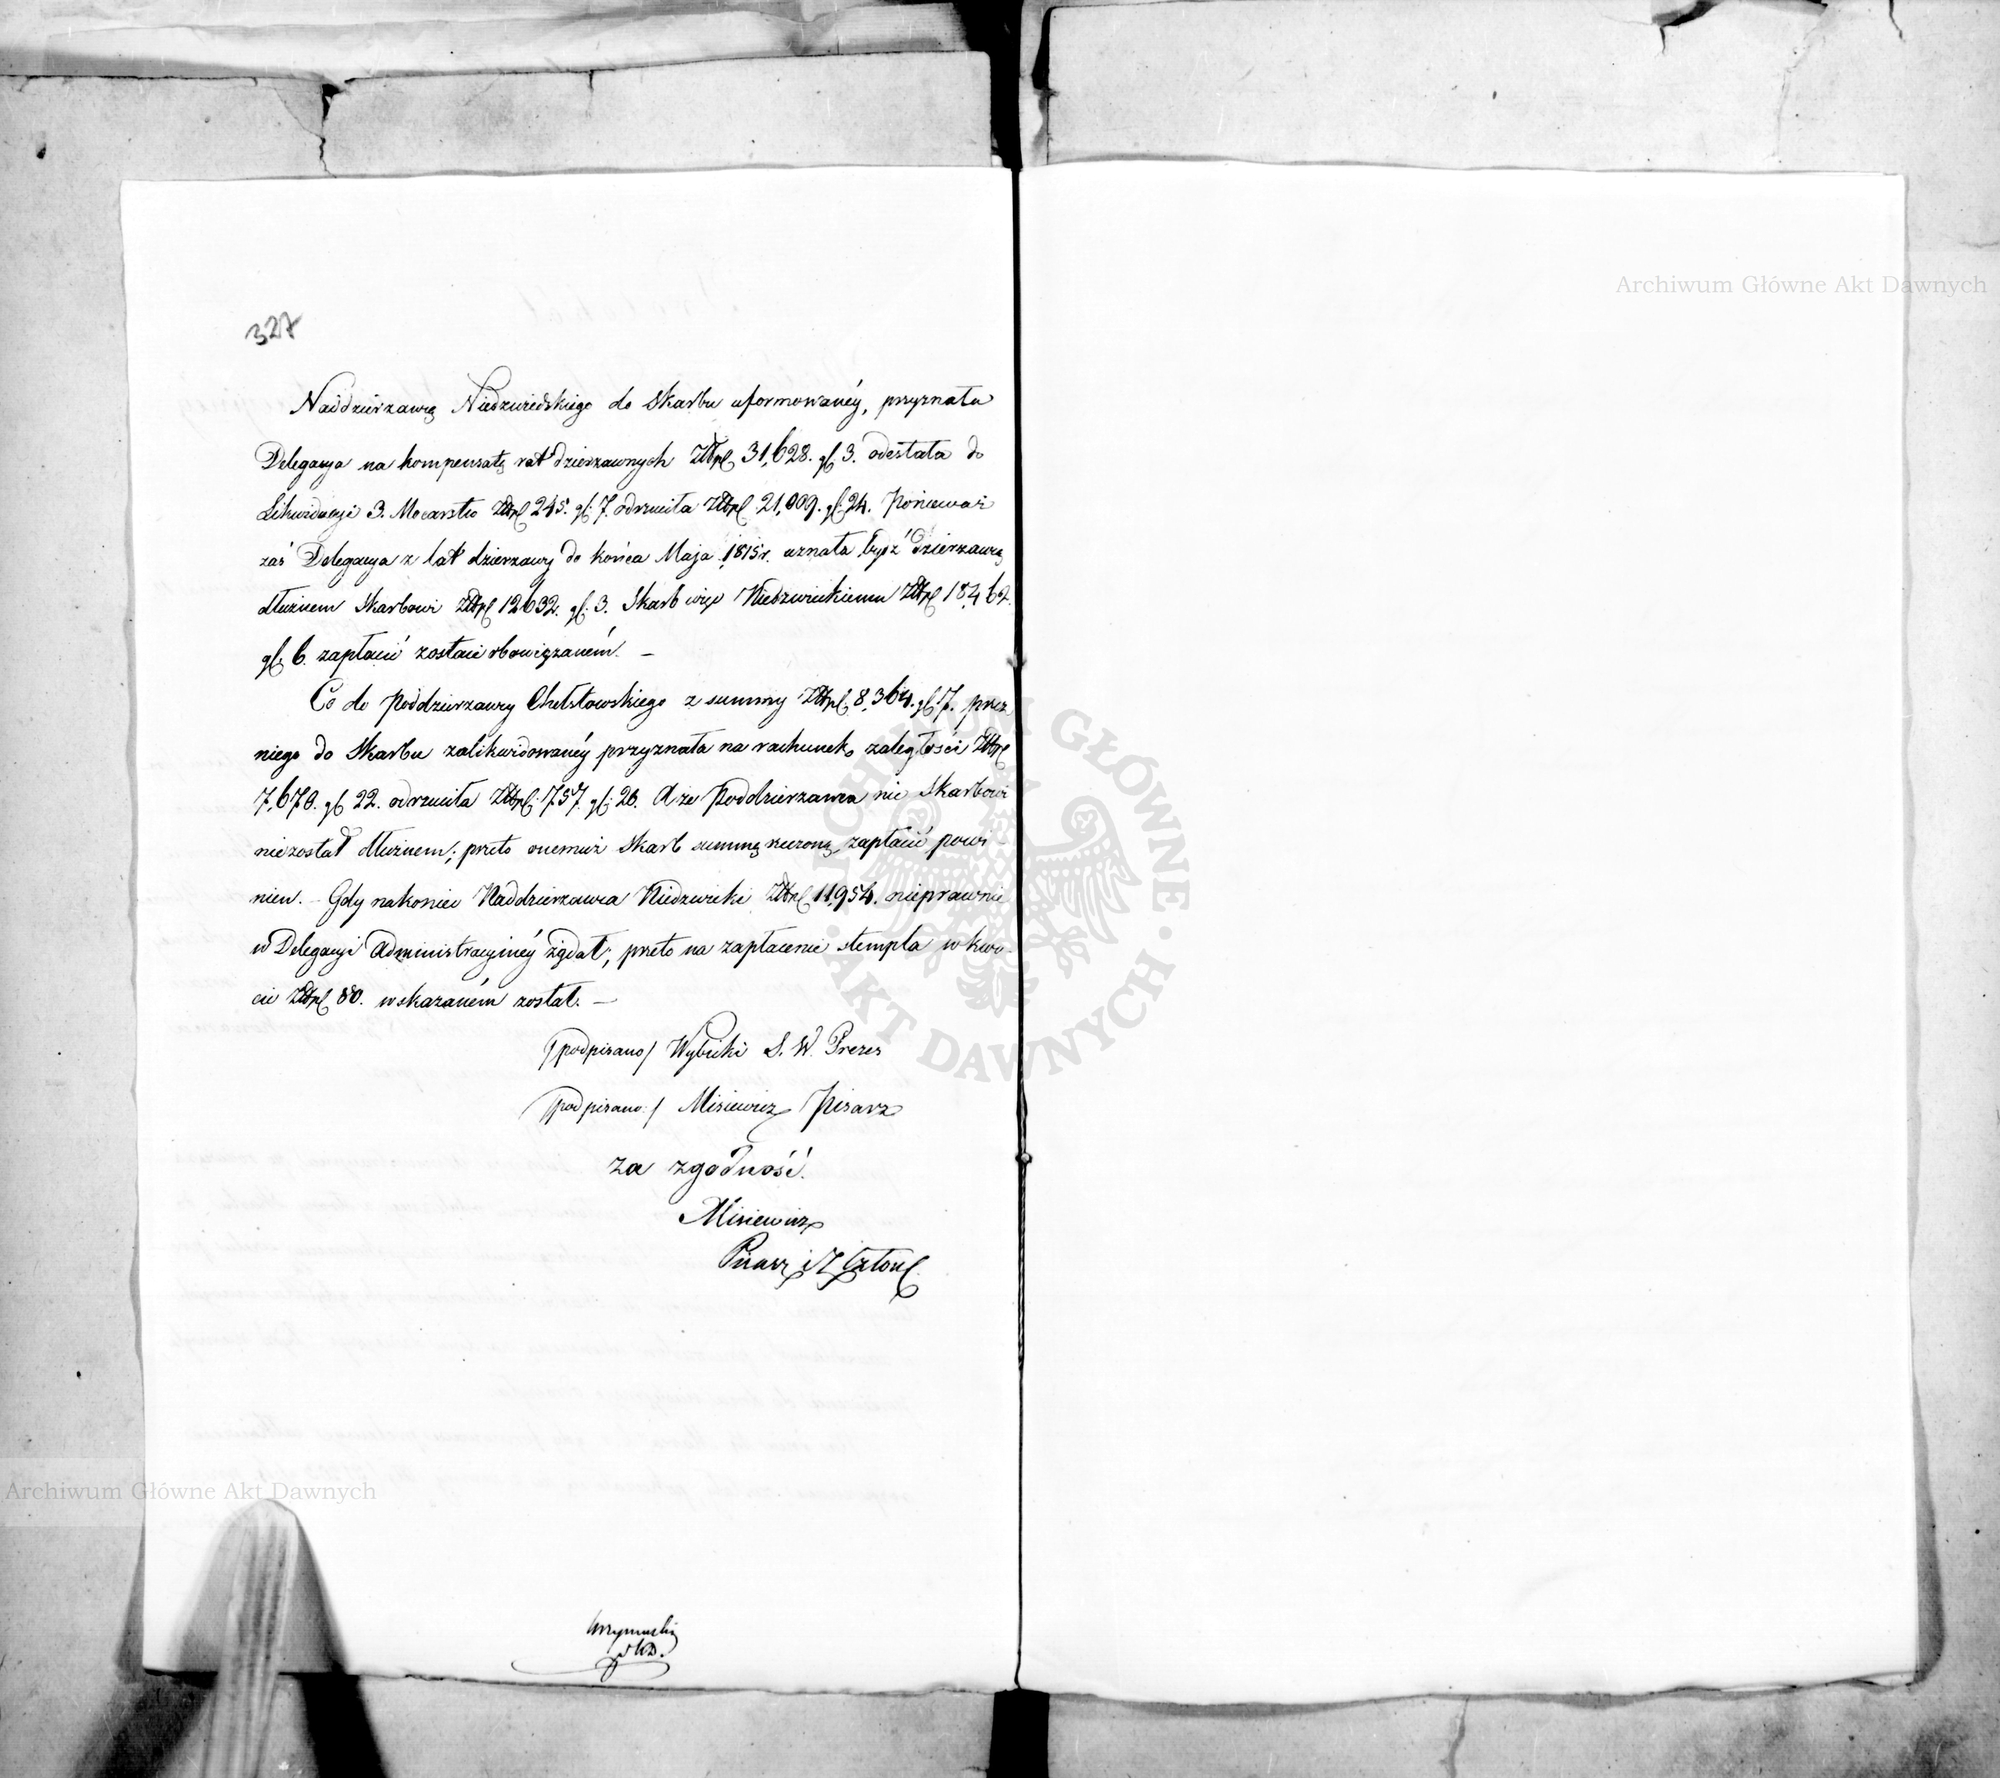 327
Naddzierżawcę Niedzwiedskiego do Skarbu uformowanéy, przyznała
Delegacya na kompensatę rat dzierzawnych Złtpl 31,628. gl 3. odesłała do
Likwidacyi 3. Mocarstw Złtpl 245. gl: 7. odrzuciła Złtpl 21,009. gl 24. Ponieważ
zaś Delegacya z lat dzierzawy do końca Maja 1815 r. uznała bydź Dzierzawcę
dłużnem Skarbowi Złtpl 12632. gl: 3. Skarb więc Niedzwieckiemu Złtpl 18,462.
gl. 6. zapłacić zostaie obowiązanem. —
Co do Poddzierzawcy Chełstowskiego z summy Złtpl. 8,364. gl. 7. przez
niego do Skarbu zalikwidowanéy przyznała na rachunek zaległości Złtpl
7,670. gl 22. odrzuciła Złtpl: 757. gl: 26. A że Poddzierzawca nic Skarbowi
niezostał dłużnem; przeto onemuż Skarb summę rzeczoną zapłacić powi-
nien. - Gdy nakoniec Naddzierzawca Niedzwicki Złtpl 11,954. nieprawnie
w Delegacyi Administracyinéy żądał; przeto na zapłacenie stempla w kwo-
cie Złtpl 80. wskazaném został. —
/podpisano/ Wybicki S. W. Prezes
/podpisano:/ Misiewicz Pisarz
za zgodność.
Misiewicz
Pisarz i Człon
Archiwum Główne Akt Dawnych
Archiwum Główne Akt Dawnych
ARCHIWUM GŁÓWNE · AKT DAWNYCH ·